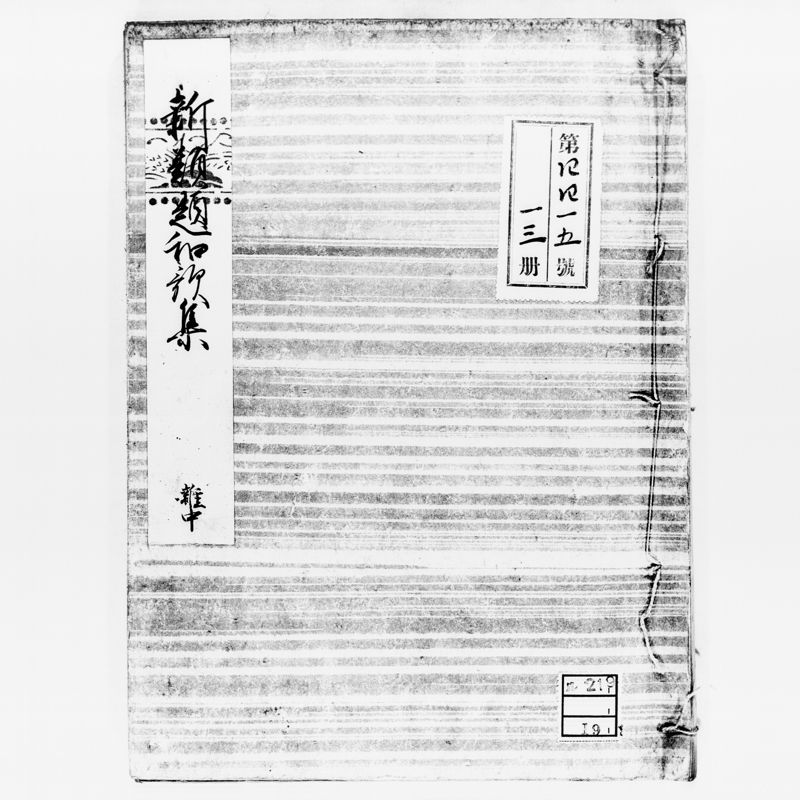 新類題和歌集
雜中
第四四一五號
一三册
219
19